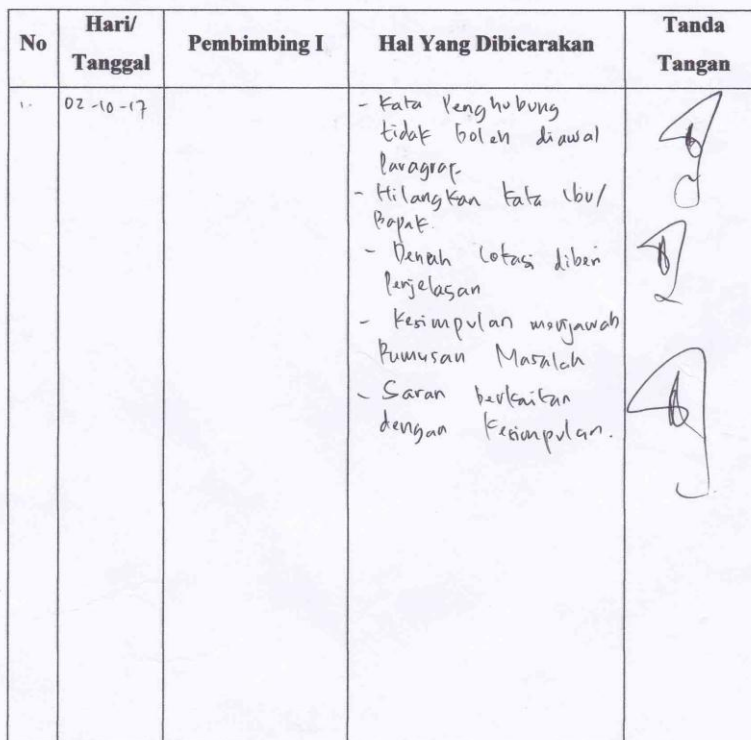 No Hari/ Tanggal Pembimbing I Hal Yang Dibicarakan Tanda Tangan
1. 02-10-17
- Kata Penghubung
tidak boleh diawal
Paragraf
- Hilangkan kata Ibu/
Bapak.
- Denah Lokasi diberi
Penjelasan
- Kesimpulan menjawab
Rumusan Masalah
- Saran berkaitan
dengan Kesimpulan.